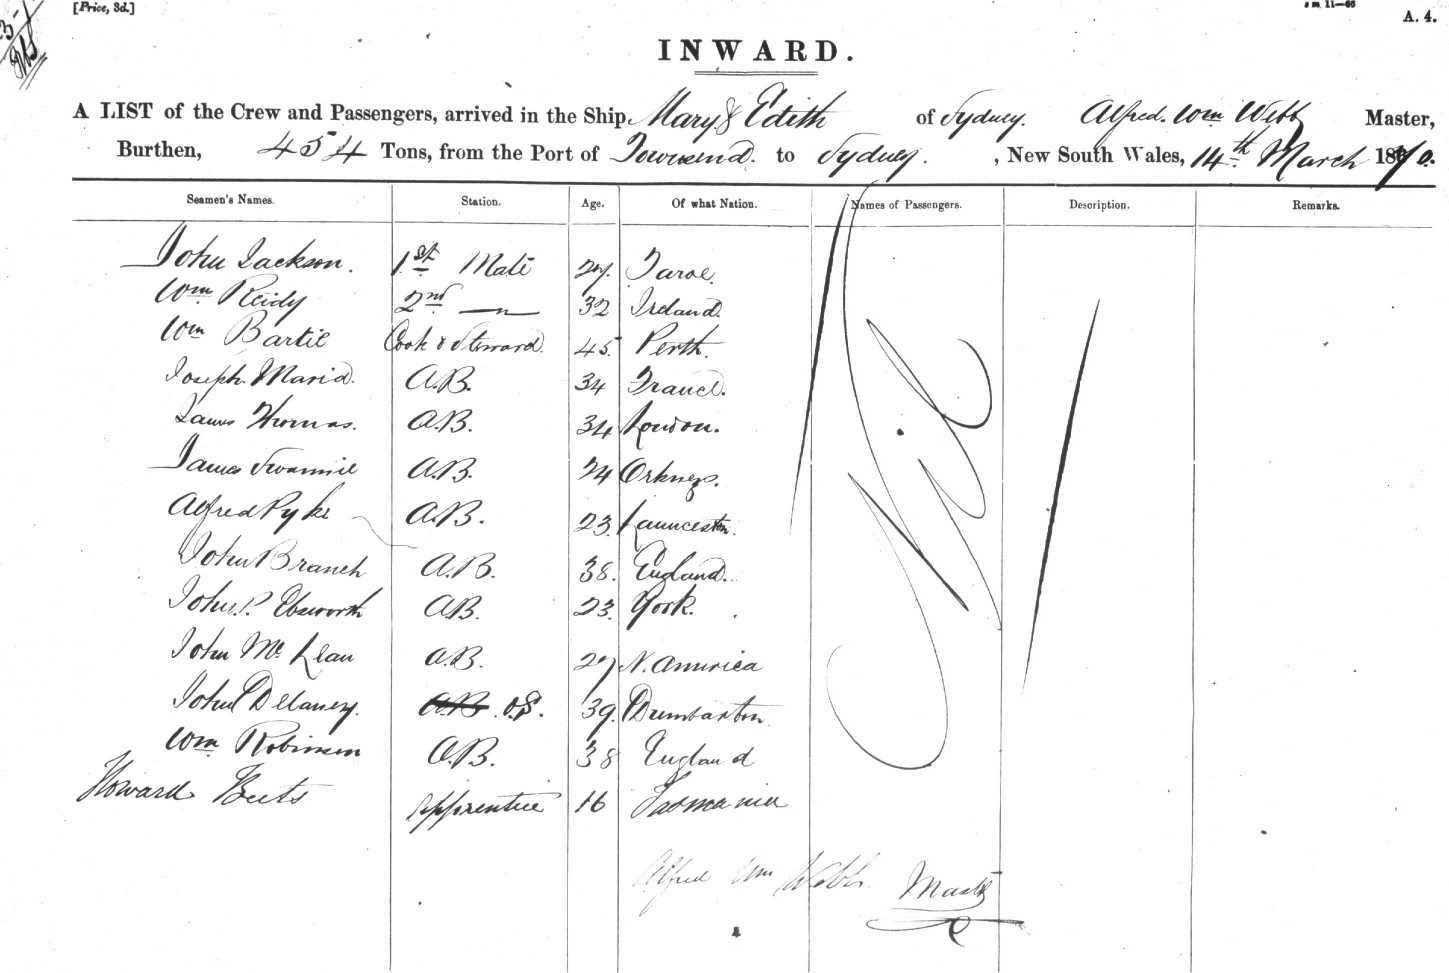 [Price, 3d.]
A. 4.
INWARD.
A LIST of the Crew and Passengers, arrived in the Ship Mary & Edith of Sydney. Alfred. Wm Webb Master,
Burthen, 454 Tons, from the Port of Townsend. to Sydney. , New South Wales, 14th March 1870.
Seamen's Names. Station. Age. Of what Nation. Names of Passengers. Description. Remarks.
John Jackson. 1st Mate 27.
Wm Reidy 2nd — " — 32 Ireland.
Wm Bartie Cook & Steward. 45. Perth.
Joseph. A.B. 34 France.
James Thomas. A.B. 34 London.
James A.B. 24 Orkneys.
Alfred Pyke A.B. 23. Launceston.
John Branch A.B. 38. England.
John. P. Ebsworth A.B. 23. York.
John Mc Lean A.B. 27 N. America
John Delaney. A.B. O.S. 39. Dumbarton
Wm Robinson A.B. 38 England
Howard Beets Apprentice 16 Tasmania
Nil
Alfred Wm Webb. Master